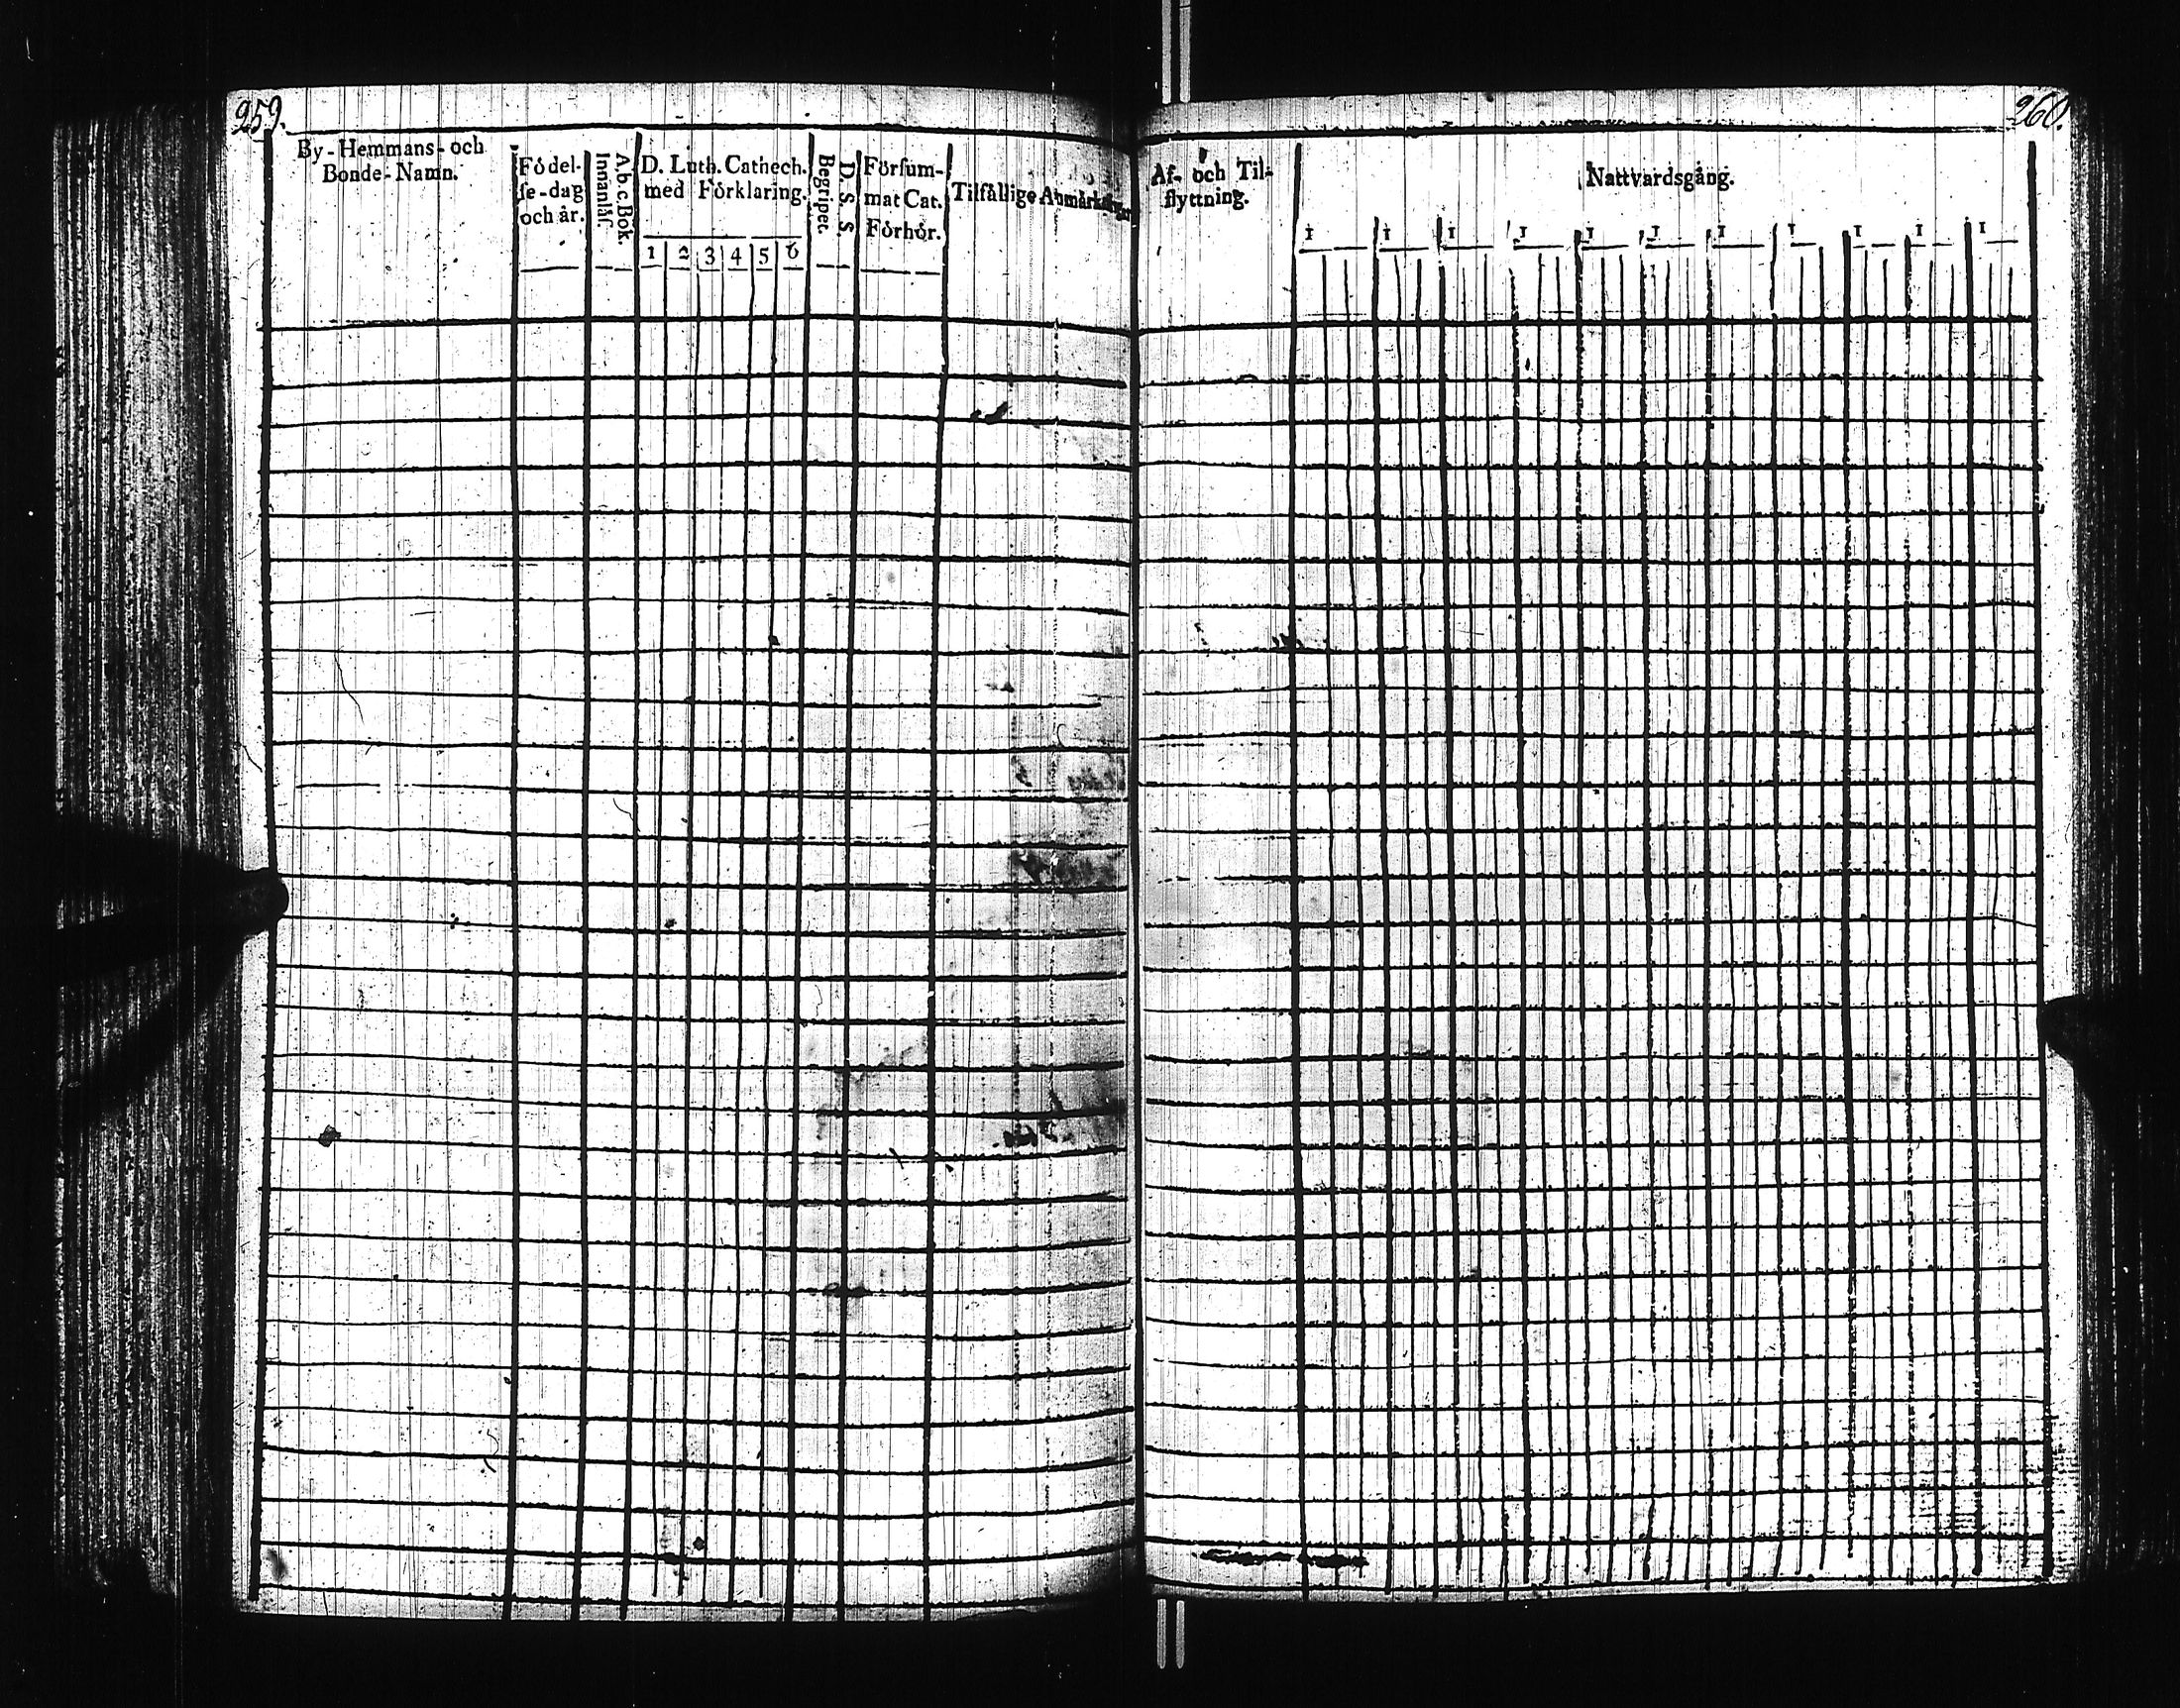 259.
By-Hemmans- och
Bonde-Namn.
Födel-
ſe-dag
och år.
A.b.c.Bok.
Innanläſ.
D. Luth. Cathech.
med Förklaring.
1 2 3 4 5 6
D. S. S.
Begripet.
Förſum-
mat Cat.
Förhör.
Tilfällige Anmärkningar
260.
Af- och Til-
flyttning.
Nattvardsgång.
1 1 1 1 1 1 1 1 1 1 1